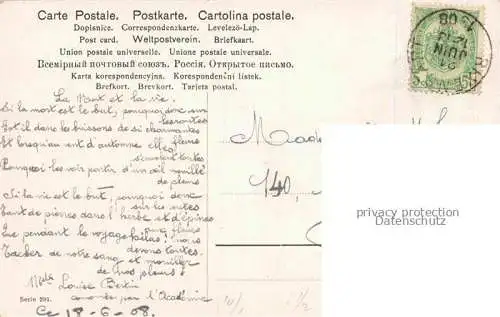 Carte Postale. Postkarte. Cartolina postale.
Dopisnice. Correspondenzkarte. Levelező-Lap.
Post card. Weltpostverein. Briefkaart.
Union postale universelle. Unione postale universale.
Всемірный почтовый союз. Россія. Открытое письмо.
Karta korespondencyjna. Korespondenční listek.
Brefkort. Brevkort. Tarjeta postal.
La Mort et la vie.
Si la mort est le but, pourquoi donc sur
les routes
Est il dans les buissons de si charmantes
fleurs
Et lorsqu'au vent d'automne elles
s'envolent toutes
Pourquoi les voir partir d'un œil mouillé
de pleurs
Si la vie est le but, pourquoi donc
sur les routes
tant de pierres dans l'herbe et d'épines
aux fleurs
Que pendant le voyage hélas! nous
devons toutes
Tacher de notre sang et mouiller
de nos pleurs!
Louise Bertin
couronnée par l'Académie
Serie 291.
Ce 18-6-08.
Mad
140,
21
JUIN
08
privacy protection
Datenschutz